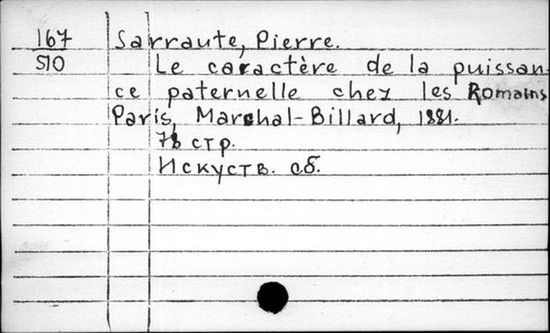 167 Sarraute, Pierre.
510 Le caractère de la puissan-
ce paternelle chez les Romains
Paris, Marchal-Billard, 1881.
78 стр.
Искуств. сб.